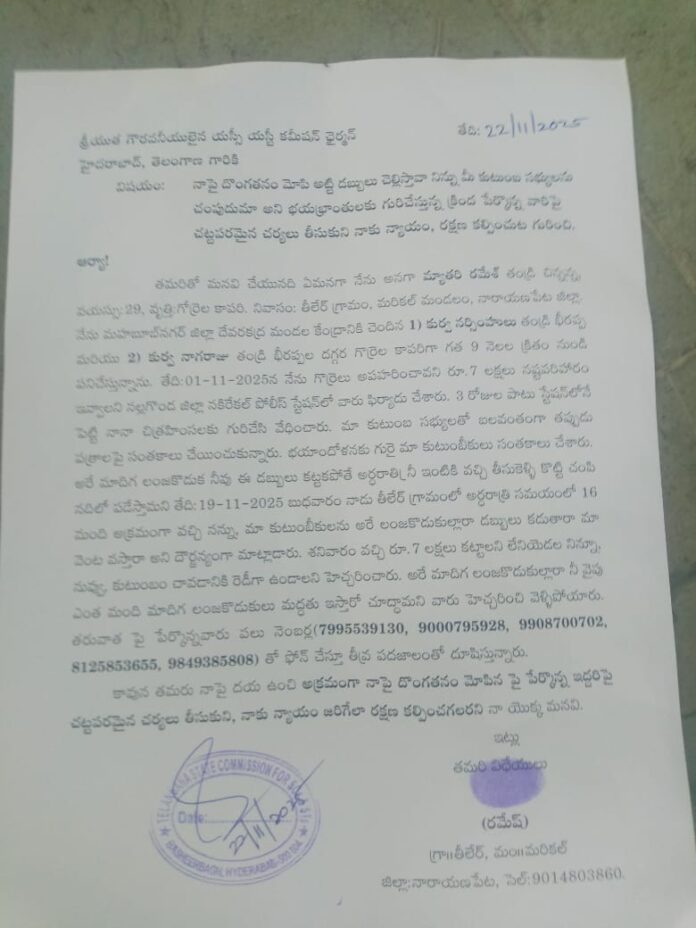 శ్రీయుత గౌరవనీయులైన యస్సీ యస్టీ కమీషన్ ఛైర్మన్ తేది: 22/11/2025
హైదరాబాద్, తెలంగాణ గారికి
విషయం: నాపై దొంగతనం మోపి అట్టి డబ్బులు చెల్లిస్తావా నిన్ను మీ కుటుంబ సభ్యులను
చంపుదుమా అని భయభ్రాంతులకు గురిచేస్తున్న క్రింద పేర్కొన్న వారిపై
చట్టపరమైన చర్యలు తీసుకుని నాకు న్యాయం, రక్షణ కల్పించుట గురించి.
ఆర్యా!
తమరితో మనవి చేయునది ఏమనగా నేను అనగా మ్యాతరి రమేశ్ తండ్రి చిన్నన్న,
వయస్సు:29, వృత్తి:గోర్రెల కాపరి. నివాసం: తీలేర్ గ్రామం, మరికల్ మండలం, నారాయణపేట జిల్లా.
నేను మహబూబ్‌నగర్ జిల్లా దేవరకద్ర మండల కేంద్రానికి చెందిన 1) కుర్వ నర్సింహులు తండ్రి భీరప్ప
మరియు 2) కుర్వ నాగరాజు తండ్రి భీరప్పల దగ్గర గొర్రెల కాపరిగా గత 9 నెలల క్రితం నుండి
పనిచేస్తున్నాను. తేది:01-11-2025న నేను గొర్రెలు అపహరించావని రూ.7 లక్షలు నష్టపరిహారం
ఇవ్వాలని నల్లగొండ జిల్లా నకిరేకల్ పోలీస్ స్టేషన్‌లో వారు ఫిర్యాదు చేశారు. 3 రోజుల పాటు స్టేషన్‌లోనే
పెట్టి నానా చిత్రహింసలకు గురిచేసి వేధించారు. మా కుటుంబ సభ్యులతో బలవంతంగా తప్పుడు
పత్రాలపై సంతకాలు చేయించుకున్నారు. భయాందోళనకు గురై మా కుటుంబీకులు సంతకాలు చేశారు.
అరే మాదిగ లంజకొడుక నీవు ఈ డబ్బులు కట్టకపోతే అర్ధరాత్రి నీ ఇంటికి వచ్చి తీసుకెళ్ళి కొట్టి చంపి
నదిలో పడేస్తామని తేది:19-11-2025 బుధవారం నాడు తీలేర్ గ్రామంలో అర్ధరాత్రి సమయంలో 16
మంది అక్రమంగా వచ్చి నన్ను, మా కుటుంబీకులను అరే లంజకొడుకుల్లారా డబ్బులు కడుతారా మా
వెంట వస్తారా అని దౌర్జన్యంగా మాట్లాడారు. శనివారం వచ్చి రూ.7 లక్షలు కట్టాలని లేనియెడల నిన్నూ,
నువ్వు, కుటుంబం చావడానికి రెడీగా ఉండాలని హెచ్చరించారు. అరే మాదిగ లంజకొడుకుల్లారా నీ వైపు
ఎంత మంది మాదిగ లంజకొడుకులు మద్ధతు ఇస్తారో చూద్దామని వారు హెచ్చరించి వెళ్ళిపోయారు.
తరువాత పై పేర్కొన్నవారు పలు నెంబర్ల(7995539130, 9000795928, 9908700702,
8125853655, 9849385808) తో ఫోన్ చేస్తూ తీవ్ర పదజాలంతో దూషిస్తున్నారు.
కావున తమరు నాపై దయ ఉంచి అక్రమంగా నాపై దొంగతనం మోపిన పై పేర్కొన్న ఇద్దరిపై
చట్టపరమైన చర్యలు తీసుకుని, నాకు న్యాయం జరిగేలా రక్షణ కల్పించగలరని నా యొక్క మనవి.
ఇట్లు
తమరి విధేయులు
(రమేష్)
గ్రా॥తీలేర్, మం॥మరికల్
జిల్లా:నారాయణపేట, సెల్:9014803860.
TELANGANA STATE COMMISSION FOR
Date: 22/11/2025
BASHEERBAGH, HYDERABAD